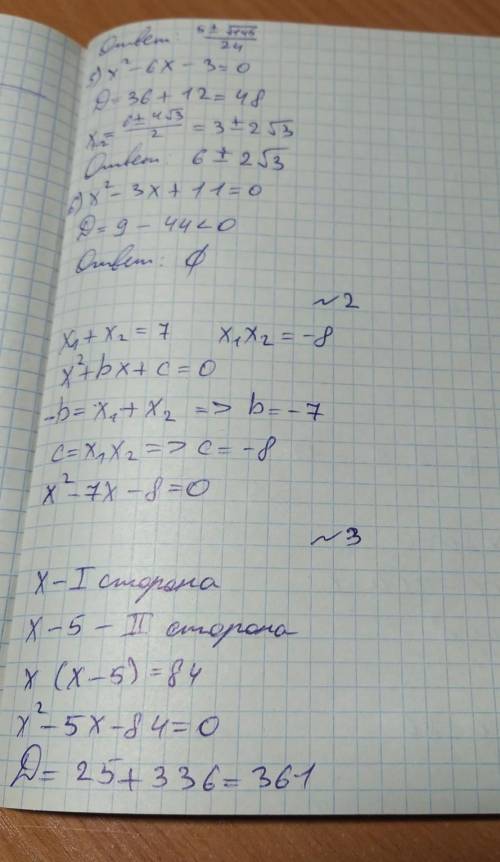 Ответ:
5) x² - 6x - 3 = 0
D = 36 + 12 = 48
x₂ = (6 ± 4√3)/2 = 3 ± 2√3
Ответ: 6 ± 2√3
6) x² - 3x + 11 = 0
D = 9 - 44 < 0
Ответ: ∅
~2
x₁ + x₂ = 7 x₁x₂ = -8
x² + bx + c = 0
-b = x₁ + x₂ => b = -7
c = x₁x₂ => c = -8
x² - 7x - 8 = 0
~3
x - I сторона
x - 5 - II сторона
x (x - 5) = 84
x² - 5x - 84 = 0
D = 25 + 336 = 361